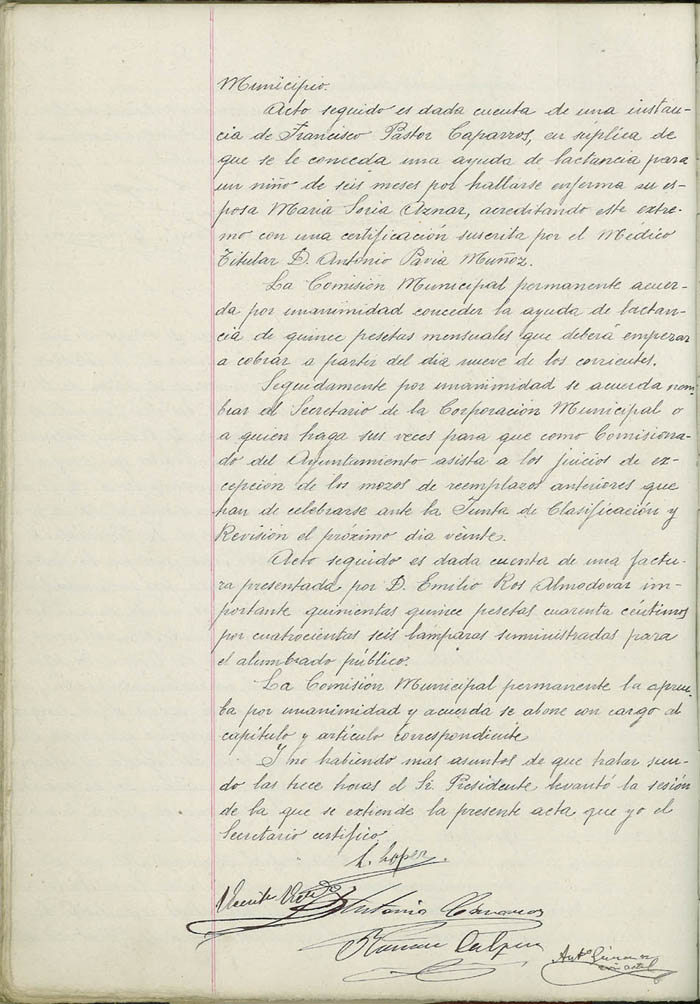 Municipio.
Acto seguido es dada cuenta de una instan-
cia de Francisco Pastor Caparros, en súplica de
que se le conceda una ayuda de lactancia para
un niño de seis meses por hallarse enferma su es-
posa Maria Soria Aznar, acreditando este extre-
mo con una certificación suscrita por el Médico
Titular D. Antonio Pavia Muñoz.
La Comisión Municipal permanente acuer-
da por unanimidad conceder la ayuda de lactan-
cia de quince pesetas mensuales que deberá empezar
a cobrar a partir del dia nueve de los corrientes.
Seguidamente por unanimidad se acuerda nom-
brar al Secretario de la Corporación Municipal o
a quien haga sus veces para que como Comisiona-
do del Ayuntamiento asista a los juicios de ex-
cepcion de los mozos de reemplazos anteriores que
han de celebrarse ante la Junta de Clasificación y
Revisión el próximo dia veinte.
Acto seguido es dada cuenta de una factu-
ra presentada por D. Emilio Ros Almodovar im-
portante quinientas quince pesetas cuarenta céntimos
por cuatrocientas seis lámparas suministradas para
el alumbrado público.
La Comisión Municipal permanente la aprue-
ba por unanimidad y acuerda se abone con cargo al
capítulo y artículo correspondiente
Y no habiendo mas asuntos de que tratar sien-
do las trece horas el Sr. Presidente levantó la sesión
de la que se extiende la presente acta que yo el
Secretario certifico.
Lopez.
Vicente
Antonio
Ramon
Antº